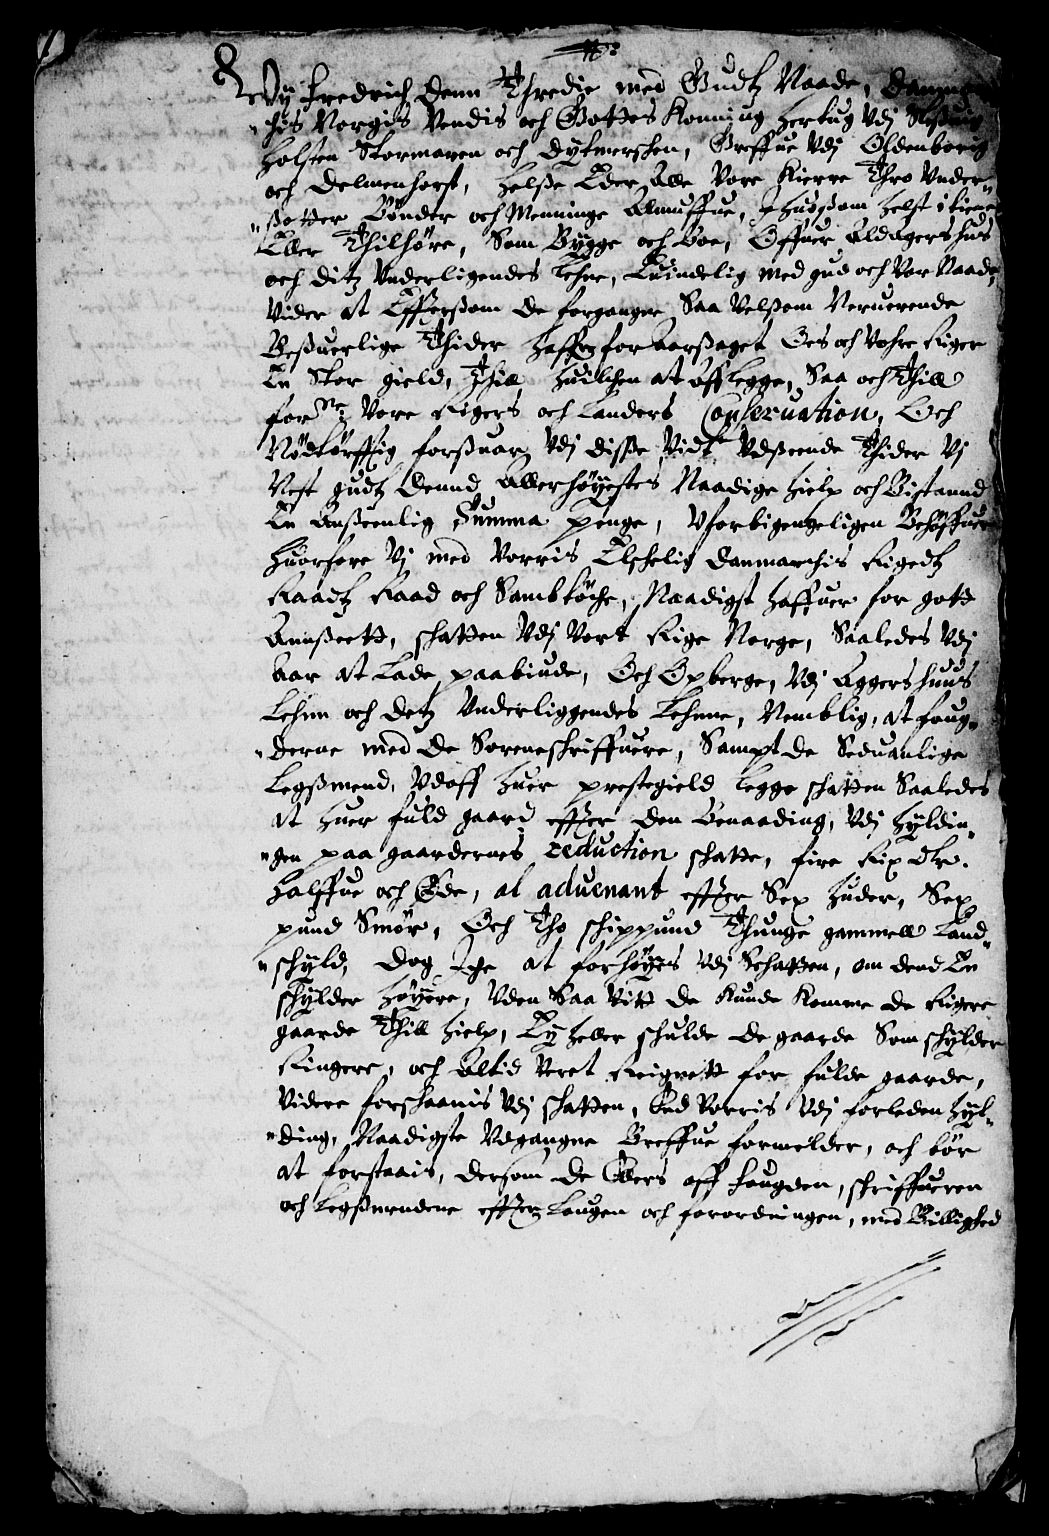 Wy Fredrich Denn Thredie med Gudtz Naade, Danmar-
chis Norgis Vendis och Gottes Konning Hertug Vdj Sleßuig
Holsten Stormaren och Dytmerschen, Greffue Vdj Oldenborig
och Delmenhorst, Helße Eder Alle Vore Kierre Thro Vnder-
ßotter Bönder och Menninge Almuffue, Ihuosßom helst i tiene
Eller Thilhöre, Som Bygge och Boe, Offuer Aldagershus
och ditz Vnderligendes Lehne, Euindelig med gud och Vor Naade,
Vider at Effterßom de forganger Saa Velßom Neruerende
Beßuerlige Thider haffer foraarßaget Oes och Vohre Riger
En Stor gield, Thill huilchen at Afflegge, Saa och Thill
forne: Vore Rigers och Landers Conseruation, Och
Nödtörfftig forßuar Vdj disße Vidt Vdßeende Thider Vj
Nest gudtz Dennd Allerhöyestes Naadige hielp och Bistannd
En Anßeenlig Summa penge, Vforbigengeligen Behöffuer
Huorfore Vj med Vorris Elschelig Danmarchis Rigedtz
Raadtz Raad och Sambtöche, Naadigst haffuer for gott
Annßeett, schatten Vdj Vort Rige Norge, Saaledes Vdj
Aar at Lade paabiude, Och Opberge, Vdj Aggershuus
Lehnn och detz Vnderliggendes Lehnne, Nemblig, at foug-
derne med de Sorenschriffuere, Sampt de Seduanlige
Legßmend, Vdaff huer prestegield legge schatten Saaledes
at huer fuld gaard effter den Benaading, Vdj hyldin-
gen paa gaardernes reduction schatte, fire Rix dlr.
Halffue och Öde, al aduenant effter Sex huder, Sex
pund Smör, Och Tho schippund Thunge gammell Land-
schyld, dog Iche at forhöyes Vdj Schatten, om dend En
schylder höyere, Vden Saa Vitt de Kunde Komme de Ringere
gaarde Thill hielp, Ey heller schulde de gaarde Som schylder
Ringere, och Altid Veret Reignett for fulde gaarde,
Videre forschaanis Vdj schatten, End Vorris Vdj forleden hyl-
ding, Naadigste Vdgangne Breffue formelder, och bör
at forstaais, dersom de Ellers aff fougden, schriffueren
och Legßmendene effter Lougen och forordningen, med Billighed